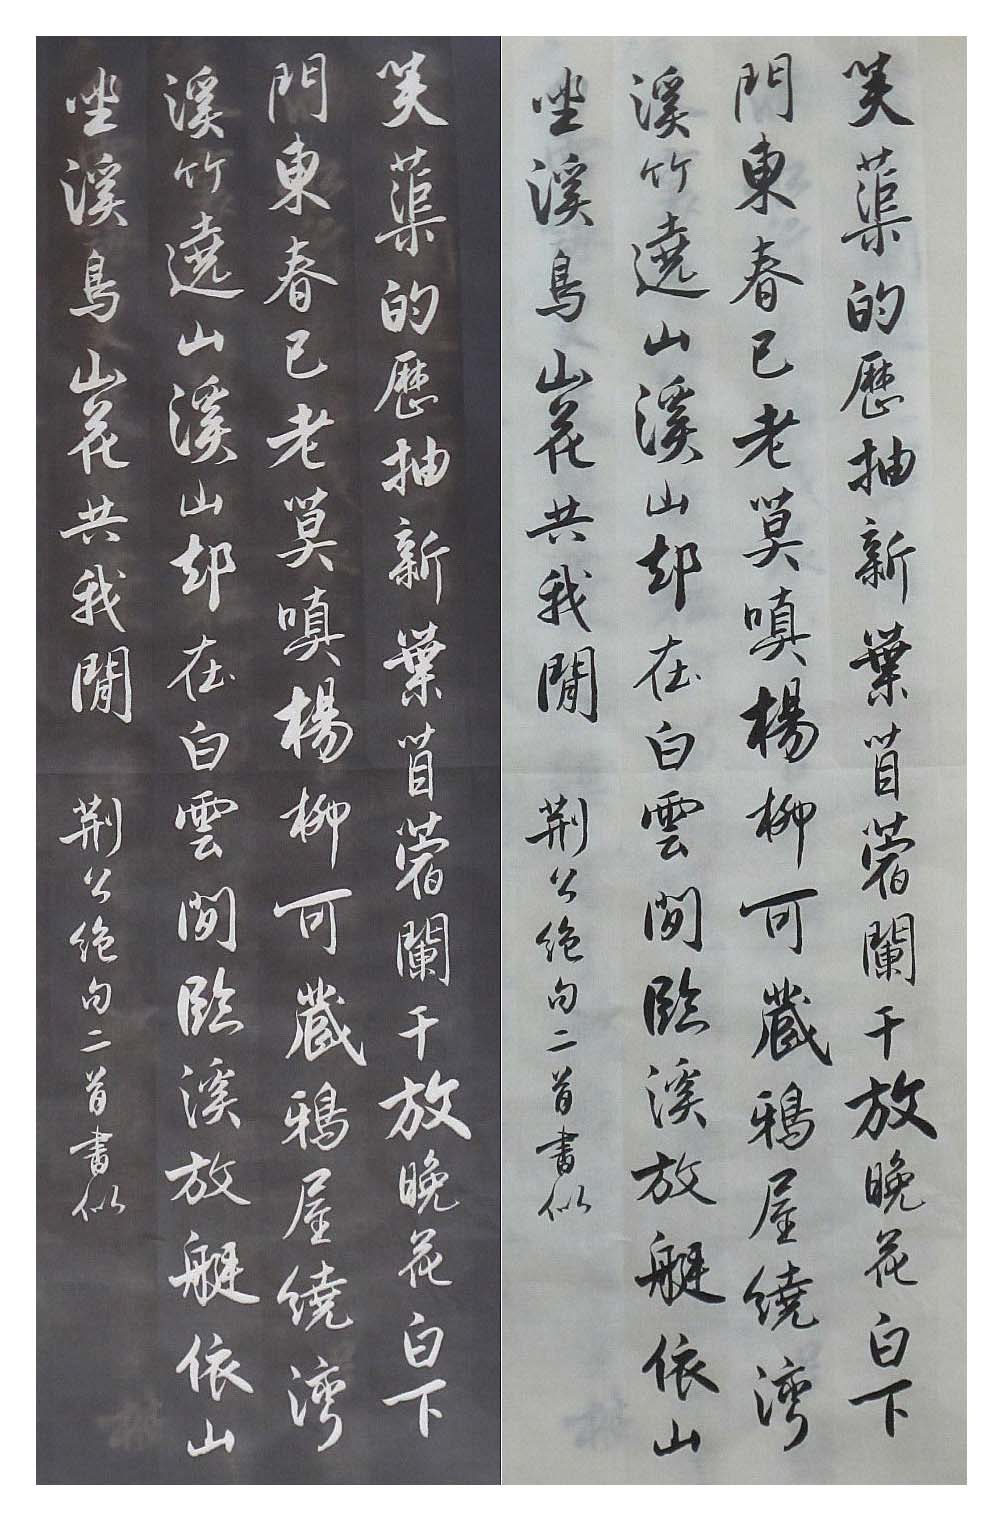 芙蕖的歷抽新葉苜蓿闌干放晚花白下
門東春已老莫嗔楊柳可藏鴉屋繞灣
溪竹遶山溪山却在白雲間臨溪放艇依山
坐溪鳥山花共我閒 荆公絶句二首書似
芙蕖的歷抽新葉苜蓿闌干放晚花白下
門東春已老莫嗔楊柳可藏鴉屋繞灣
溪竹遶山溪山却在白雲間臨溪放艇依山
坐溪鳥山花共我閒 荆公絶句二首書似